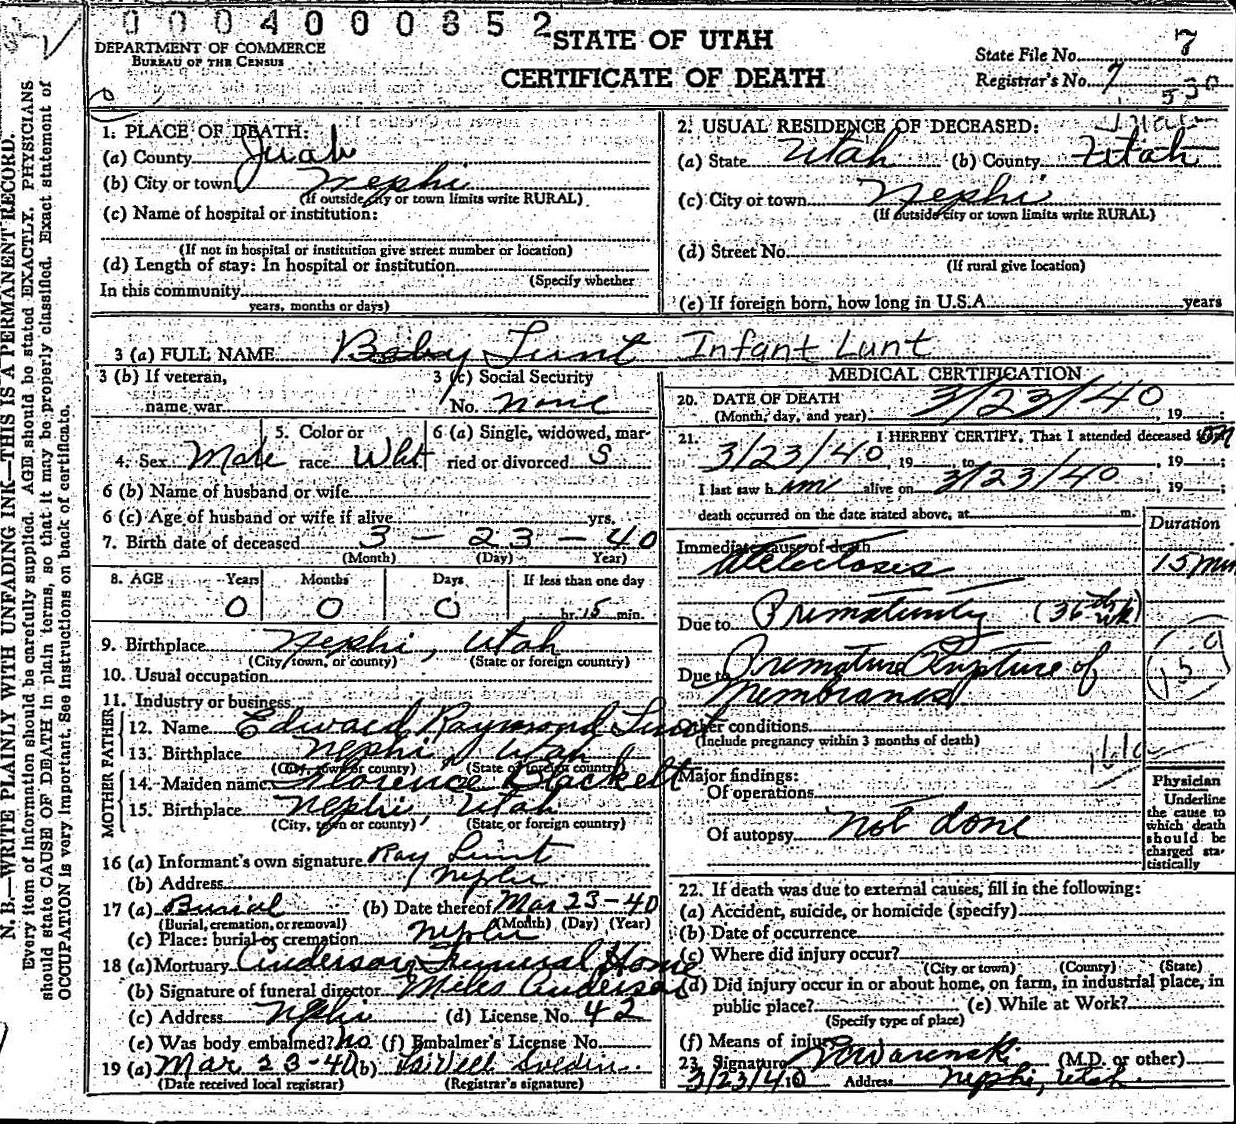 0004000852
STATE OF UTAH
CERTIFICATE OF DEATH
DEPARTMENT OF COMMERCE
BUREAU OF THE CENSUS
State File No. 7
Registrar's No. 7
530
N. B.—WRITE PLAINLY WITH UNFADING INK—THIS IS A PERMANENT RECORD.
Every item of information should be carefully supplied. AGE should be stated EXACTLY. PHYSICIANS
should state CAUSE OF DEATH in plain terms, so that it may be properly classified. Exact statement of
OCCUPATION is very important. See instructions on back of certificate.
1. PLACE OF DEATH:
(a) County Juab
(b) City or town Nephi
(If outside city or town limits write RURAL)
(c) Name of hospital or institution:
(If not in hospital or institution give street number or location)
(d) Length of stay: In hospital or institution
(Specify whether
In this community
years, months or days)
2. USUAL RESIDENCE OF DECEASED:
Juab
(a) State Utah (b) County Utah
(c) City or town Nephi
(If outside city or town limits write RURAL)
(d) Street No.
(If rural give location)
(e) If foreign born, how long in U.S.A. years
3 (a) FULL NAME Baby Lunt Infant Lunt
3 (b) If veteran,
name war
3 (c) Social Security
No. none
4. Sex Male
5. Color or
race Whit
6 (a) Single, widowed, mar-
ried or divorced S
6 (b) Name of husband or wife
6 (c) Age of husband or wife if alive yrs.
7. Birth date of deceased 3 - 23 - 40
(Month) (Day) Year)
8. AGE Years Months Days If less than one day
0 0 0 hr. 15 min.
9. Birthplace Nephi, Utah
(City, town, or county) (State or foreign country)
10. Usual occupation
11. Industry or business
FATHER
12. Name Edward Raymond Lunt
13. Birthplace Nephi, Utah
(City, town or county) (State of foreign country)
MOTHER
14. Maiden name Florence Blackett
15. Birthplace Nephi, Utah
(City, town or county) (State or foreign country)
16 (a) Informant's own signature Ray Lunt
(b) Address Nephi
17 (a) Burial (b) Date thereof Mar 23-40
(Burial, cremation, or removal) (Month) (Day) (Year)
(c) Place: burial or cremation Nephi
18 (a) Mortuary Anderson Funeral Home
(b) Signature of funeral director Miles Anderson
(c) Address Nephi (d) License No. 42
(e) Was body embalmed? No (f) Embalmer's License No.
19 (a) Mar 23-40 (b)
(Date received local registrar) (Registrar's signature)
MEDICAL CERTIFICATION
20. DATE OF DEATH
(Month, day, and year) 3/23/40, 19 ;
21. I HEREBY CERTIFY, That I attended deceased
3/23/40, 19 to 3/23/40, 19 ;
I last saw him alive on 3/23/40, 19 ;
death occurred on the date stated above, at m.
Duration
Immediate cause of death
Atelectoses 15 min
Due to Prematurity (36th wk)
Due to Premature Rupture of
Membranes
Other conditions
(Include pregnancy within 3 months of death)
Major findings:
Of operations
Of autopsy not done
Physician
Underline
the cause to
which death
should be
charged sta-
tistically
22. If death was due to external causes, fill in the following:
(a) Accident, suicide, or homicide (specify)
(b) Date of occurrence
(c) Where did injury occur?
(City or town) (County) (State)
(d) Did injury occur in or about home, on farm, in industrial place, in
public place? (e) While at Work?
(Specify type of place)
(f) Means of injury
23. Signature (M.D. or other)
3/23/40 Address Nephi, Utah.